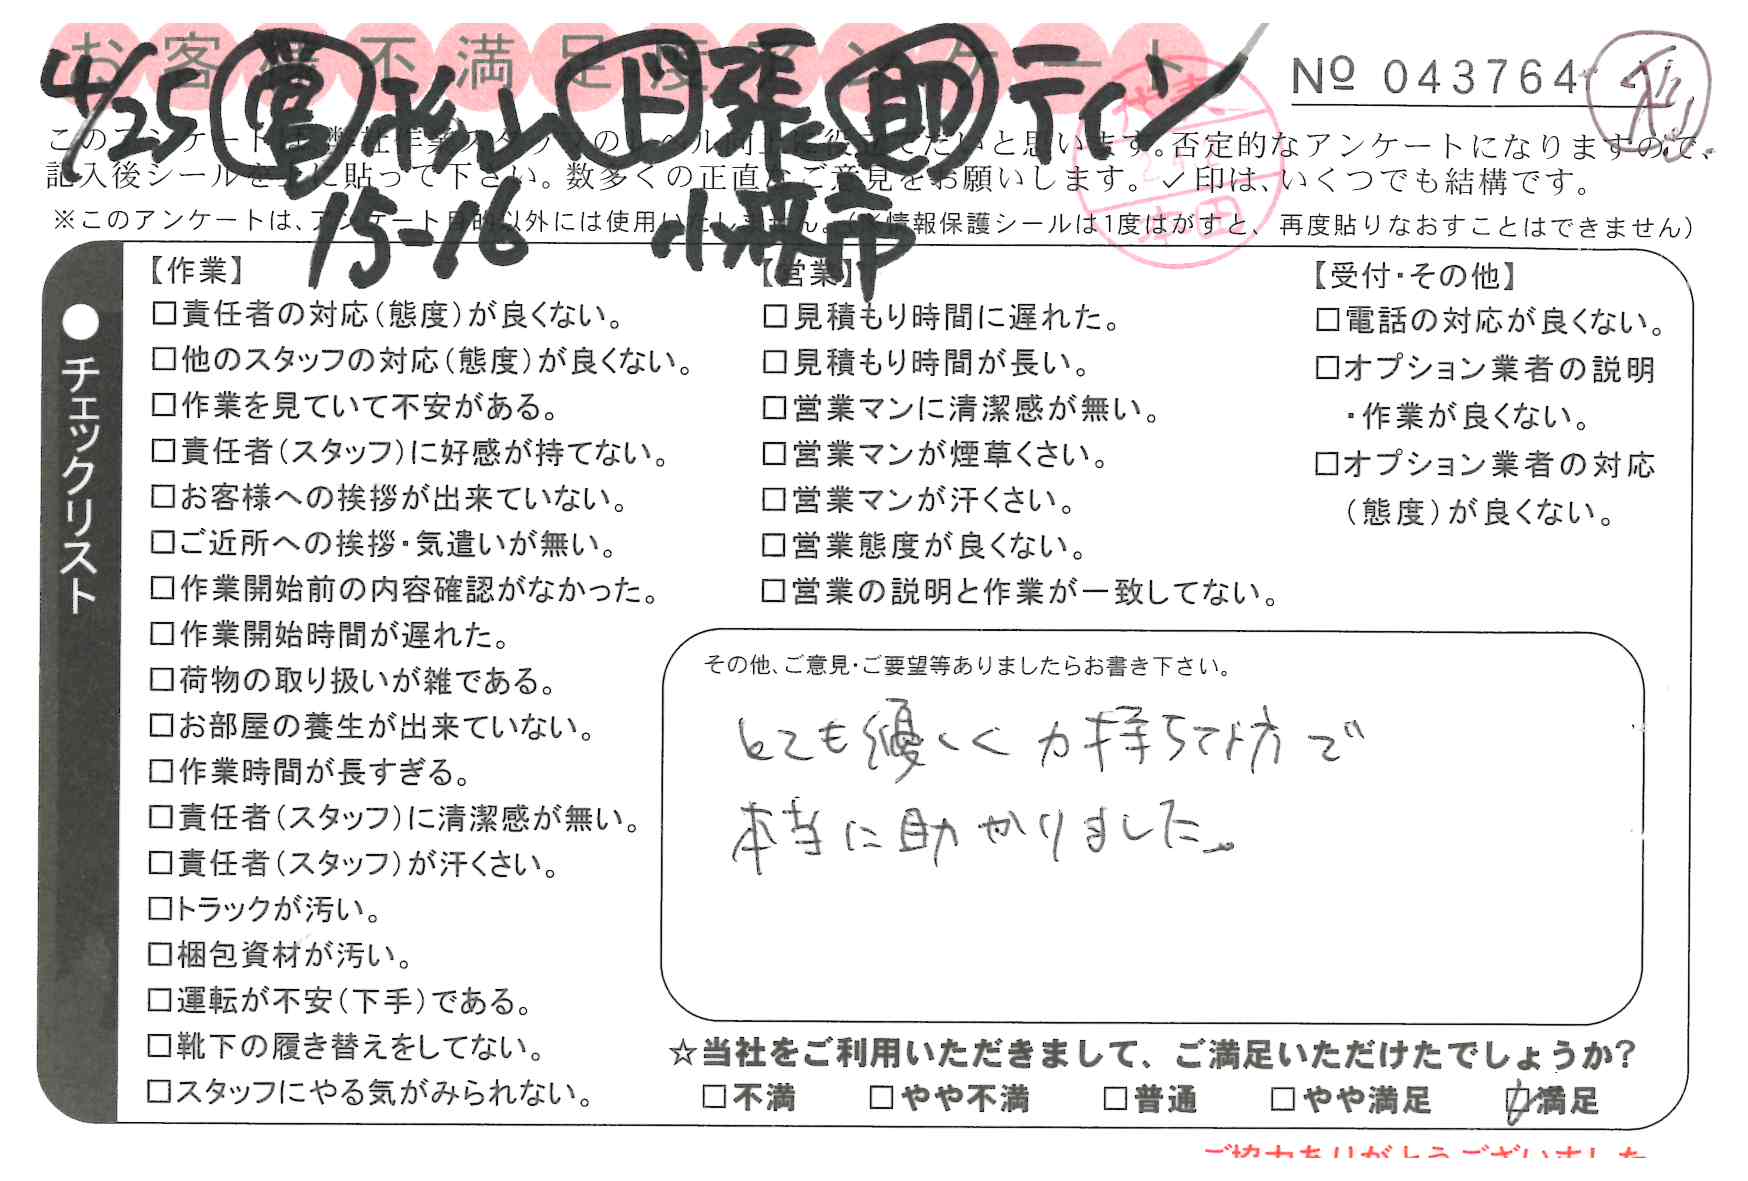 お客様不満足度アンケート
4/25 営 秋山 下 張 助 ティン
15-16 小 市
№ 043764
このアンケートは、弊社作業スタッフのレベル向上に役立てたいと思います。否定的なアンケートになりますので、
記入後シールを上に貼って下さい。数多くの正直なご意見をお願いします。✓印は、いくつでも結構です。
※このアンケートは、アンケート目的以外には使用いたしません。(※情報保護シールは1度はがすと、再度貼りなおすことはできません)
●チェックリスト
【作業】
□責任者の対応(態度)が良くない。
□他のスタッフの対応(態度)が良くない。
□作業を見ていて不安がある。
□責任者(スタッフ)に好感が持てない。
□お客様への挨拶が出来ていない。
□ご近所への挨拶・気遣いが無い。
□作業開始前の内容確認がなかった。
□作業開始時間が遅れた。
□荷物の取り扱いが雑である。
□お部屋の養生が出来ていない。
□作業時間が長すぎる。
□責任者(スタッフ)に清潔感が無い。
□責任者(スタッフ)が汗くさい。
□トラックが汚い。
□梱包資材が汚い。
□運転が不安(下手)である。
□靴下の履き替えをしてない。
□スタッフにやる気がみられない。
【営業】
□見積もり時間に遅れた。
□見積もり時間が長い。
□営業マンに清潔感が無い。
□営業マンが煙草くさい。
□営業マンが汗くさい。
□営業態度が良くない。
□営業の説明と作業が一致してない。
【受付・その他】
□電話の対応が良くない。
□オプション業者の説明
・作業が良くない。
□オプション業者の対応
(態度)が良くない。
その他、ご意見・ご要望等ありましたらお書き下さい。
とても優しく力持ちな方で
本当に助かりました。
☆当社をご利用いただきまして、ご満足いただけたでしょうか?
□不満 □やや不満 □普通 □やや満足 ☑満足
ご協力ありがとうございました